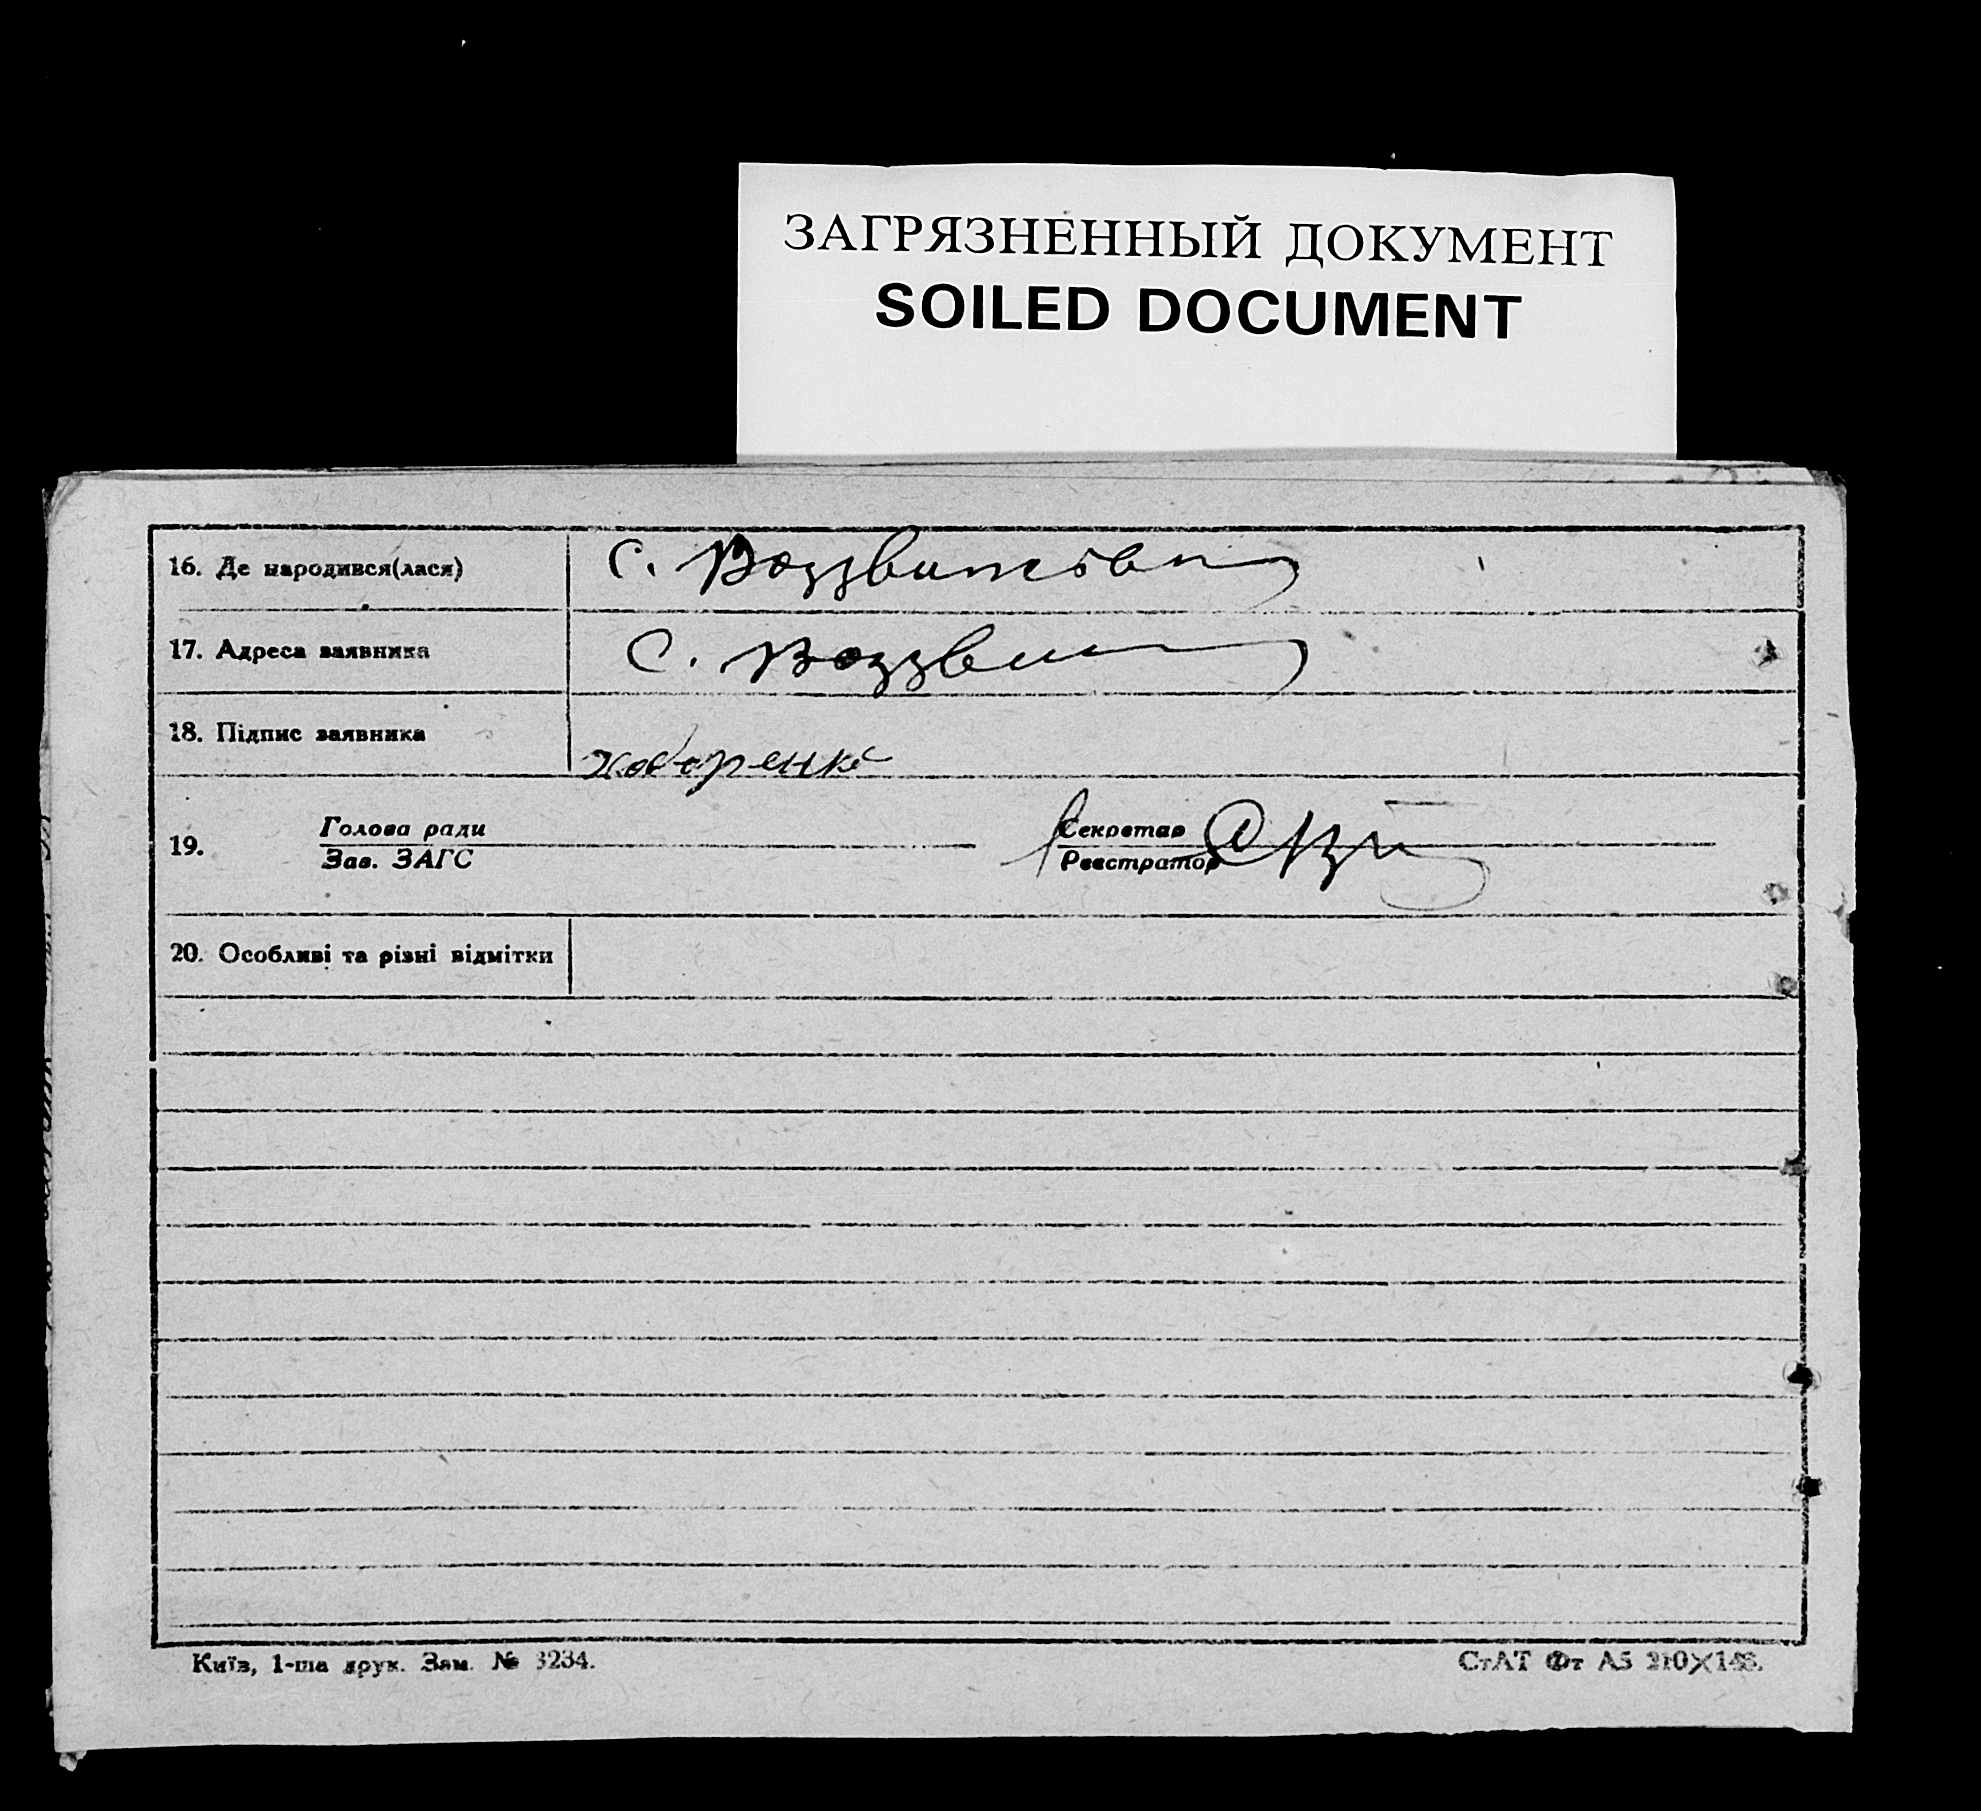 ЗАГРЯЗНЕННЫЙ ДОКУМЕНТ
SOILED DOCUMENT
16. Де народився(лася) с. Воздвижівка
17. Адреса заявника с. Воздви
18. Підпис заявника Ховаренко
19. Голова ради
Зав. ЗАГС
Секретар
Реєстратор
20. Особливі та різні відмітки
Київ, 1-ша друк. Зам. № 3234.
СтАТ Фт А5 210×148.